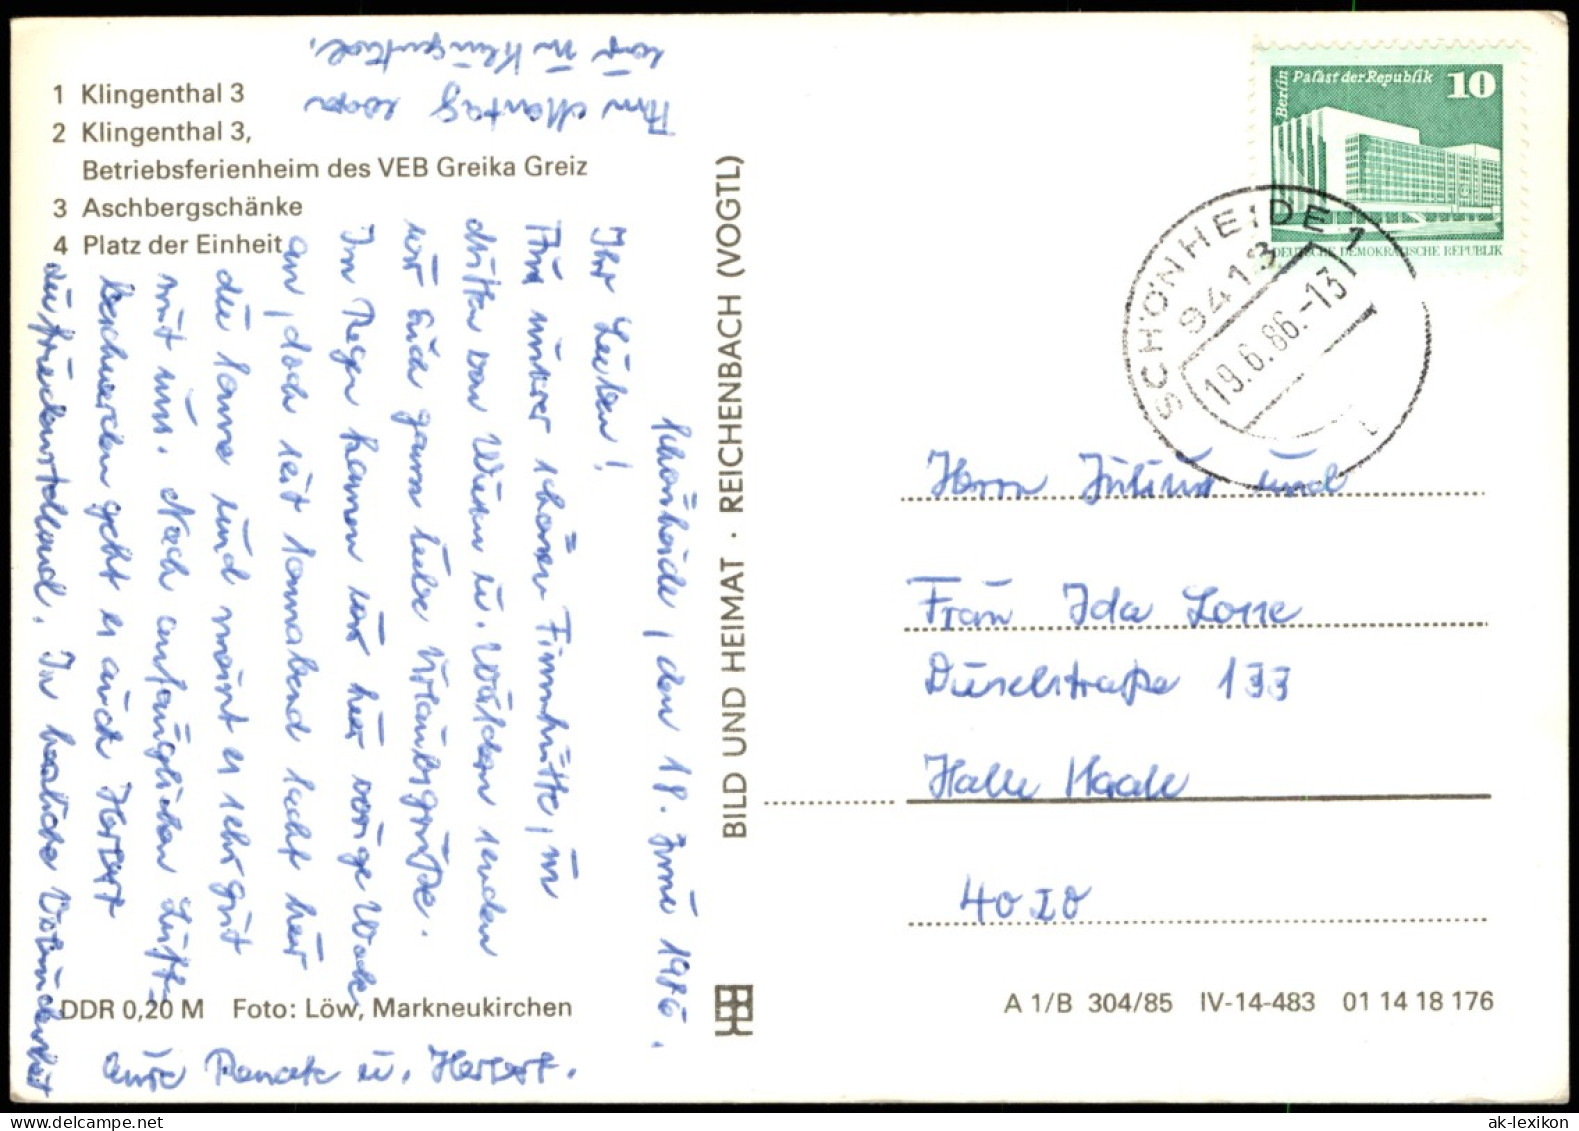 1 Klingenthal 3
2 Klingenthal 3,
Betriebsferienheim des VEB Greika Greiz
3 Aschbergschänke
4 Platz der Einheit
Schönheide, den 18. Juni 1986.
Ihr Lieben!
Aus unser schönen Finnhütte, in
mitten von Wiesen u. Wäldern senden
wir Euch ganz liebe Urlaubsgrüße.
Im Regen kamen wir hier vorige Woche
an, doch seit Sonnabend lacht hier
die Sonne und meint es sehr gut
mit uns. Nach anfänglichen Luft-
beschwerden geht es auch Herbert
zufriedenstellend. In herzlicher Verbundenheit
eure Renate u. Herbert.
Am Montag waren
wir in Klingenthal.
DDR 0,20 M Foto: Löw, Markneukirchen
BILD UND HEIMAT · REICHENBACH (VOGTL)
Berlin Palast der Republik 10
DEUTSCHE DEMOKRATISCHE REPUBLIK
SCHÖNHEIDE 1
9413
19.6.86.-13
Herrn Julius und
Frau Ida Lorre
Düselstraße 133
Halle Saale
4010
A 1/B 304/85 IV-14-483 01 14 18 176
ak-lexikon